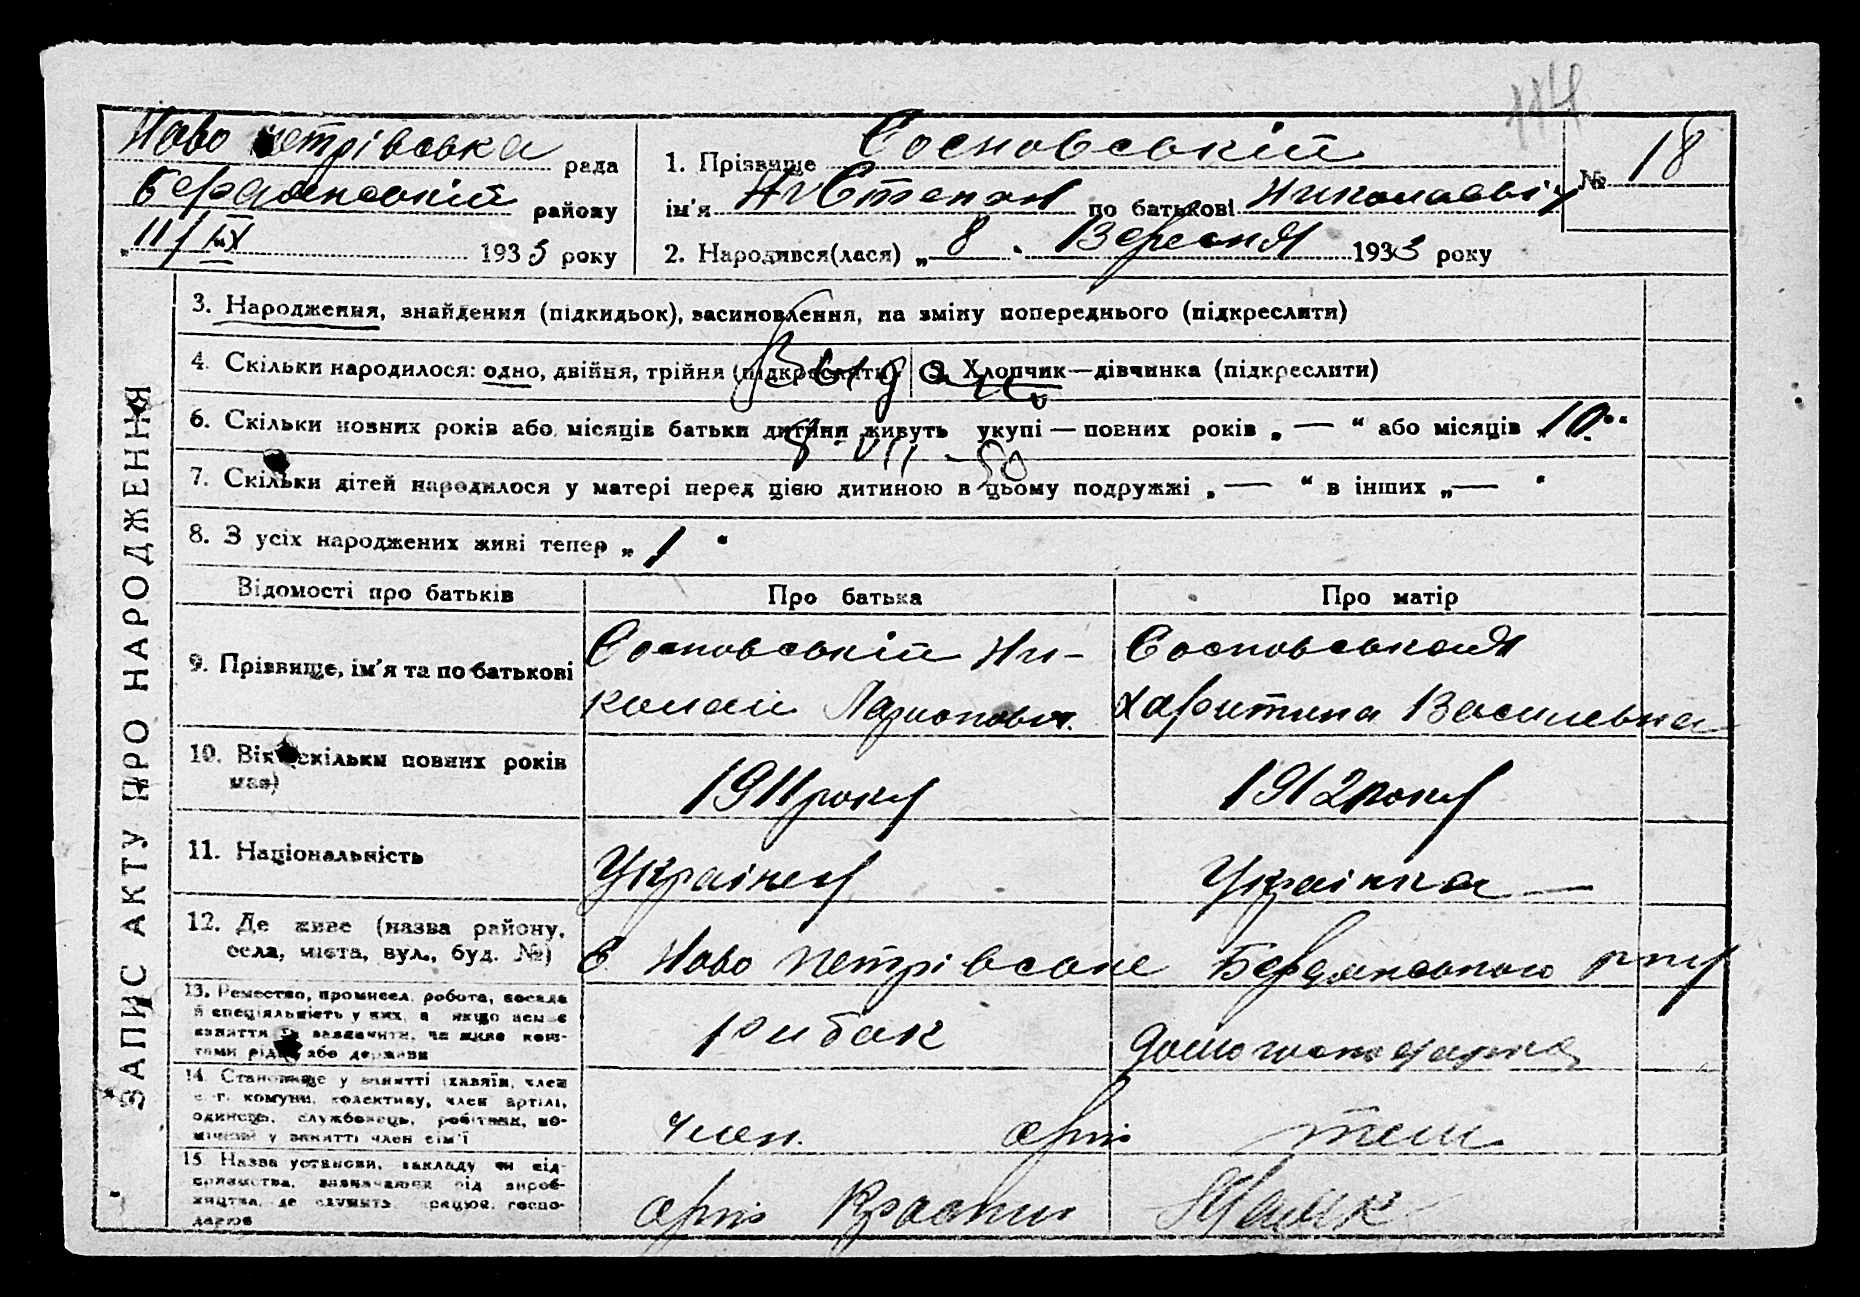 114
Ново петрівська рада
Бердянський району
„11/IX 1933 року
1. Прізвище Сосновській
ім'я Степан по батькові Николаевіч
№ 18
2. Народився(лася) „8 " Вересня 1933 року
ЗАПИС АКТУ ПРО НАРОДЖЕННЯ
3. Народження, знайдення (підкидьок), засиновлення, на зміну попереднього (підкреслити)
4. Скільки народилося: одно, двійня, трійня (підкреслити) 5. Хлопчик—дівчинка (підкреслити)
Выдано
6. Скільки повних років або місяців батьки дитини живуть укупі — повних років „ — “ або місяців „10“
8-VII-50
7. Скільки дітей народилося у матері перед цією дитиною в цьому подружжі „ — “ в інших „ — “
8. З усіх народжених живі тепер „ 1 “
Відомості про батьків Про батька Про матір
9. Прізвище, ім'я та по батькові
Сосновській Ни-
колай Ларионович.
Сосновськая
Харитина Василевна
10. Вік (скільки повних років
має)
1911 року
1912 року
11. Національність
Українец
Українка —
12. Де живе (назва району,
села, міста, вул., буд. №)
с Ново петрівське Бердянського р-ну
13. Ремество, промисел, робота, посада
й спеціяльність у них, а якщо немає
заняття то зазначити, чи живе кош-
тами рідні або держави
рибак
домогосподарка
14. Становище у занятті (хазяїн, член
с.-г. комуни, колективу, член артілі,
одинець, службовець, робітник, по-
мічний у занятті член сім'ї
член. арті тели
15. Назва установи, закладу чи під-
приємства, визначаючи рід вироб-
ництва, де служить, працює, госпо-
дарює
арті Красний Маяк